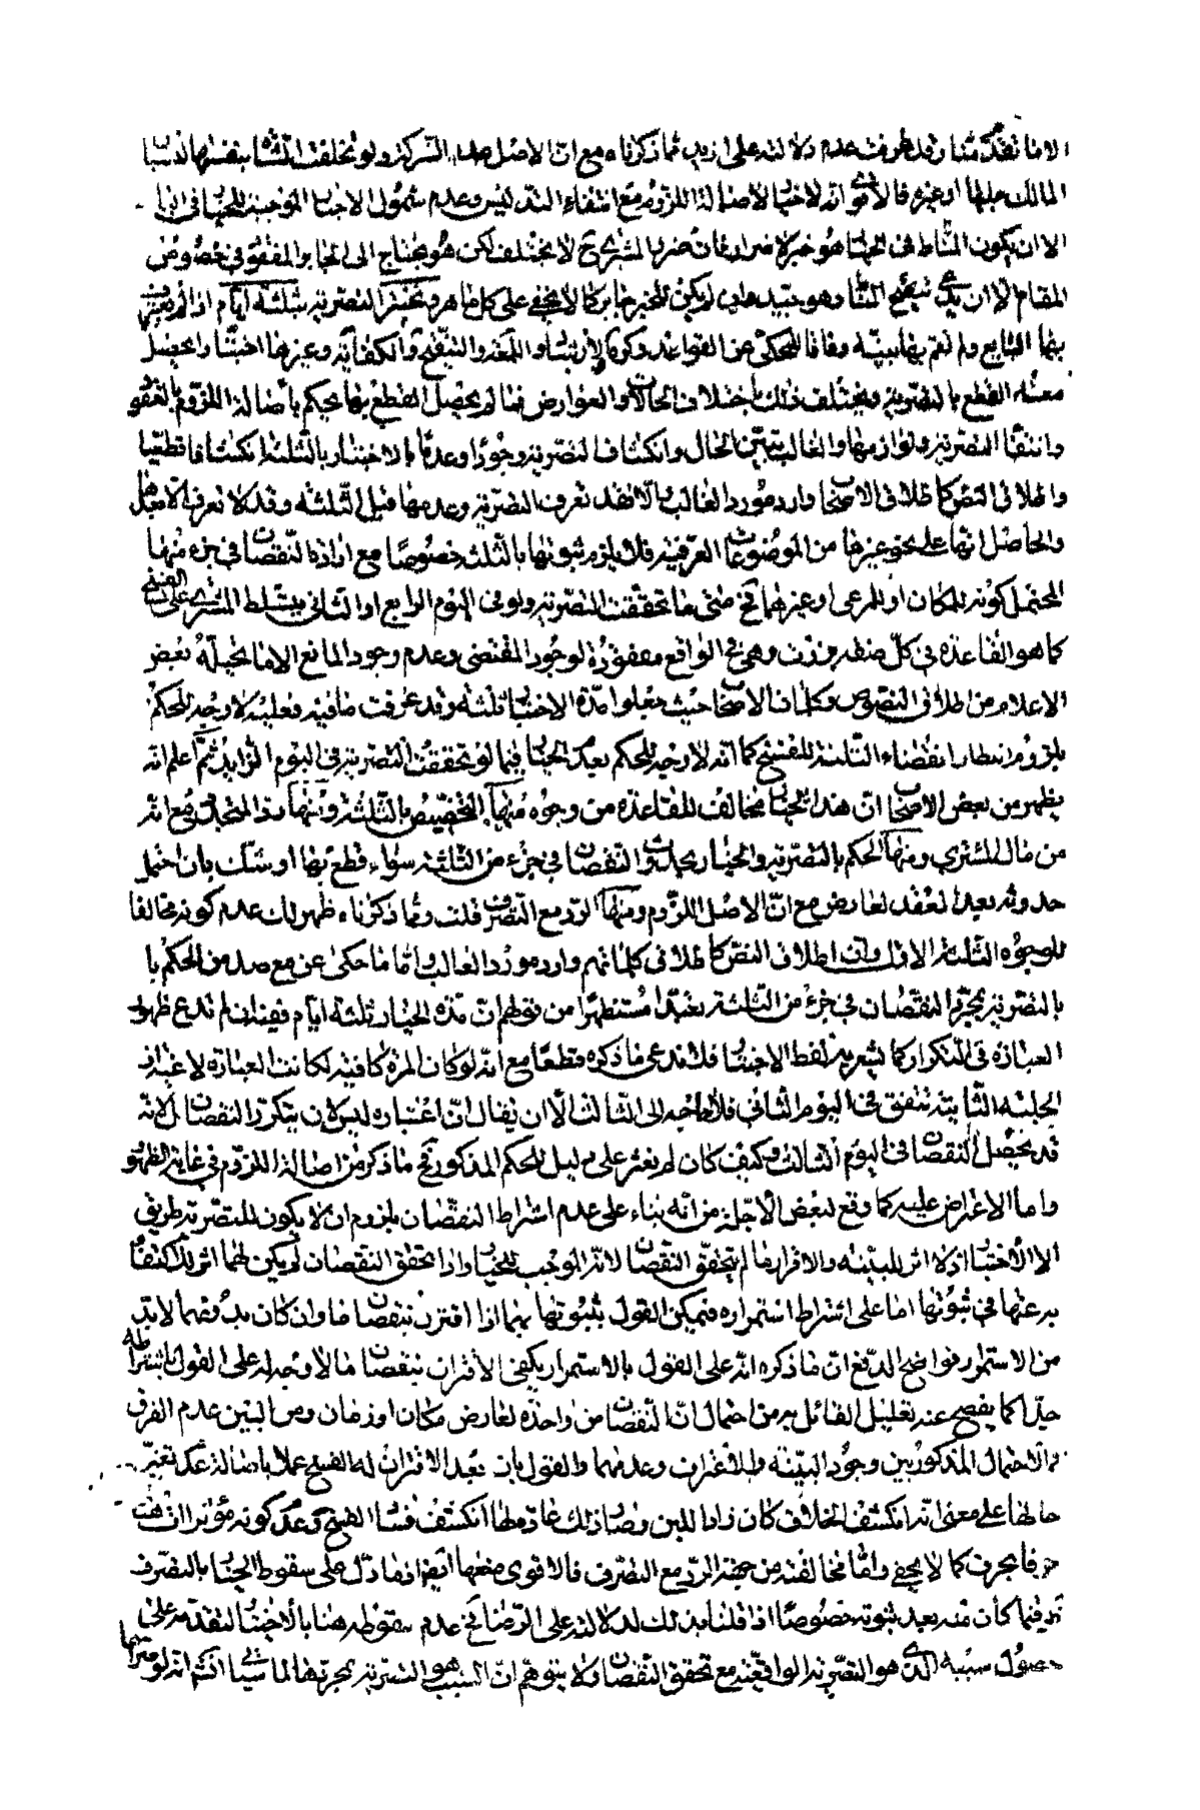 الا ما تقدم منا وقد عرفت عدم دلالته على ازيد مما ذكرناه مع ان الاصل عدم الشركة ولو تخلفت الشاة بنفسها لنسيان
المالك حلبها او غيره فالاقوى انه لا خيار لاصالة اللزوم مع انتفاء التدليس وعدم شمول الاخبار الموجبة للخيار في
الا ان يكون المناط في الخيار هو خبر لا ضرر فان ضرر المشتري ح لا يختلف لكن هو يحتاج الى الجابر المفقود في خصوص
المقام الا ان يدعى تنقيح المناط وهو بعيد لم يكن للخبر جابر كما لا يخفى على كل ماهر وتختبر التصرية بثلثة ايام اذا لم يعترف
بها البايع ولم تقم بها بينة وفاقا للمحكى عن القواعد وكرة والارشاد واللمعة والتنقيح والكفاية وغيرها اختبارا يحصل
معه القطع بالتصرية ويختلف ذلك باختلاف الحالات والعوارض فما لم يحصل القطع بها يحكم باصالة اللزوم بالعقود
وانتفاء التصرية ولوازمها والغالب تبين الحال وانكشاف التصرية وجودا وعدما بالاختبار بالثلثة انكشافا قطعيا
واطلاق النص كاطلاق الاصحاب وارد مورد الغالب والا فقد تعرف التصرية وعدمها قبل الثلثة وقد لا تعرف الا بعدها
والحاصل انها على نحو غيرها من الموضوعات العرفية فلا يلزم ثبوتها بالثلثة خصوصا مع ارادة النقصان في جزء منها
المحتمل كونه للمكان او للمرعى او غيرهما فح متى ما تحققت التصرية ولو في اليوم الرابع او الثاني يتسلط المشتري على الفسخ
كما هو القاعدة في كل ضرر وهي في الواقع مفقودة لوجود المقتضى وعدم وجود المانع الا ما تخيله بعض
الاعلام من اطلاق النصوص وكلمات الاصحاب حيث جعلوا مدة الاختبار ثلثة وقد عرفت ما فيه فعليه لا وجه للحكم
بلزوم انتظار انقضاء الثلثة للفسخ كما انه لا وجه للحكم بعدم الخيار فيما لو تحققت التصرية في اليوم الرابع ثم اعلم انه
يظهر من بعض الاصحاب ان هذا الخيار مخالف للقاعدة من وجوه منها التخصيص بالثلثة ومنها رد المتجدد مع انه
من مال المشتري ومنها الحكم بالتصرية والخيار بحدوث النقصان في جزء من الثلثة سواء قطع بها او شك بان احتمل
حدوثه بعد العقد لعارض مع ان الاصل اللزوم ومنها الرد مع التصرف قلت ومما ذكرناه ظهر لك عدم كونه مخالفا
للوجوه الثلثة الاول وان اطلاق النص كاطلاق كلماتهم وارد مورد الغالب واما ما حكى عن مع صد من الحكم با
بالتصرية بمجرد النقصان في جزء من الثلثة تعبدا مستظهرا من قولهم ان مدة الخيار ثلثة ايام ففيه ان لم ندع ظهور
العبارة في التكرار كما يشعر به لفظ الاختبار فلا ندعى ما ذكره قطعا مع انه لو كان المرة كافية لكانت العبارة لاغية اذ
الحلبة الثانية تتفق في اليوم الثاني فلا حاجة الى الثالث الا ان يقال ان اعتباره ليس لان يتكرر النقصان بل لانه
قد يحصل النقصان في اليوم الثالث وكيف كان لم نعثر على دليل للحكم المذكور فح ما ذكر من اصالة اللزوم في غاية الظهور
واما الاعتراض عليه كما وقع لبعض الاجلة من انه بناء على عدم اشتراط النقصان يلزم ان لا يكون للتصرية طريق
الا الاختبار اذ لا اثر للبينة والاقرار ما لم يتحقق النقصان لانه الموجب للخيار واذا تحقق النقصان لم يكن لهما اثر للاكتفاء
به عنها في ثبوتها اما على اشتراط استمراره فيمكن القول بثبوتها بهما اذا اقترن بنقصان ما وان كان بدونهما لا بد
من الاستمرار فواضح الدفع ان ما ذكره انه على القول بالاستمرار يكفى الاقتران بنقصان ما لا وجه له على القول باشتراطه
جدا كما يفصح عنه تعليل القائل به من احتمال ان النقصان من واحدة لعارض مكان او زمان ومن البين عدم الفرق
في الاحتمال المذكور بين وجود البينة والاعتراف وعدمهما والقول بان بعد الاقتران له الفسخ عملا باصالة عدم تغير
حالها على معنى انه انكشف الخلاف كان زاد اللبن وصار ذلك عادة لها انكشف فساد الفسخ وعدم كونه مؤثرا
جزافا بحرف كما لا يخفى واما مخالفته من جهة الرد مع التصرف فالاقوى منعها ايضا فما دل على سقوط الخيار بالتصرف
فيما كان منه بعد ثبوته خصوصا اذا قلنا بذلك لدلالته على الرضا فح عدم سقوطه هنا بالاختبار لتقدمه على
حصول سببه الذي هو التصرية الواقعية مع تحقق النقصان ولا يتوهم ان السبب هو التصرية بمجردها لما سيأتي انه لو